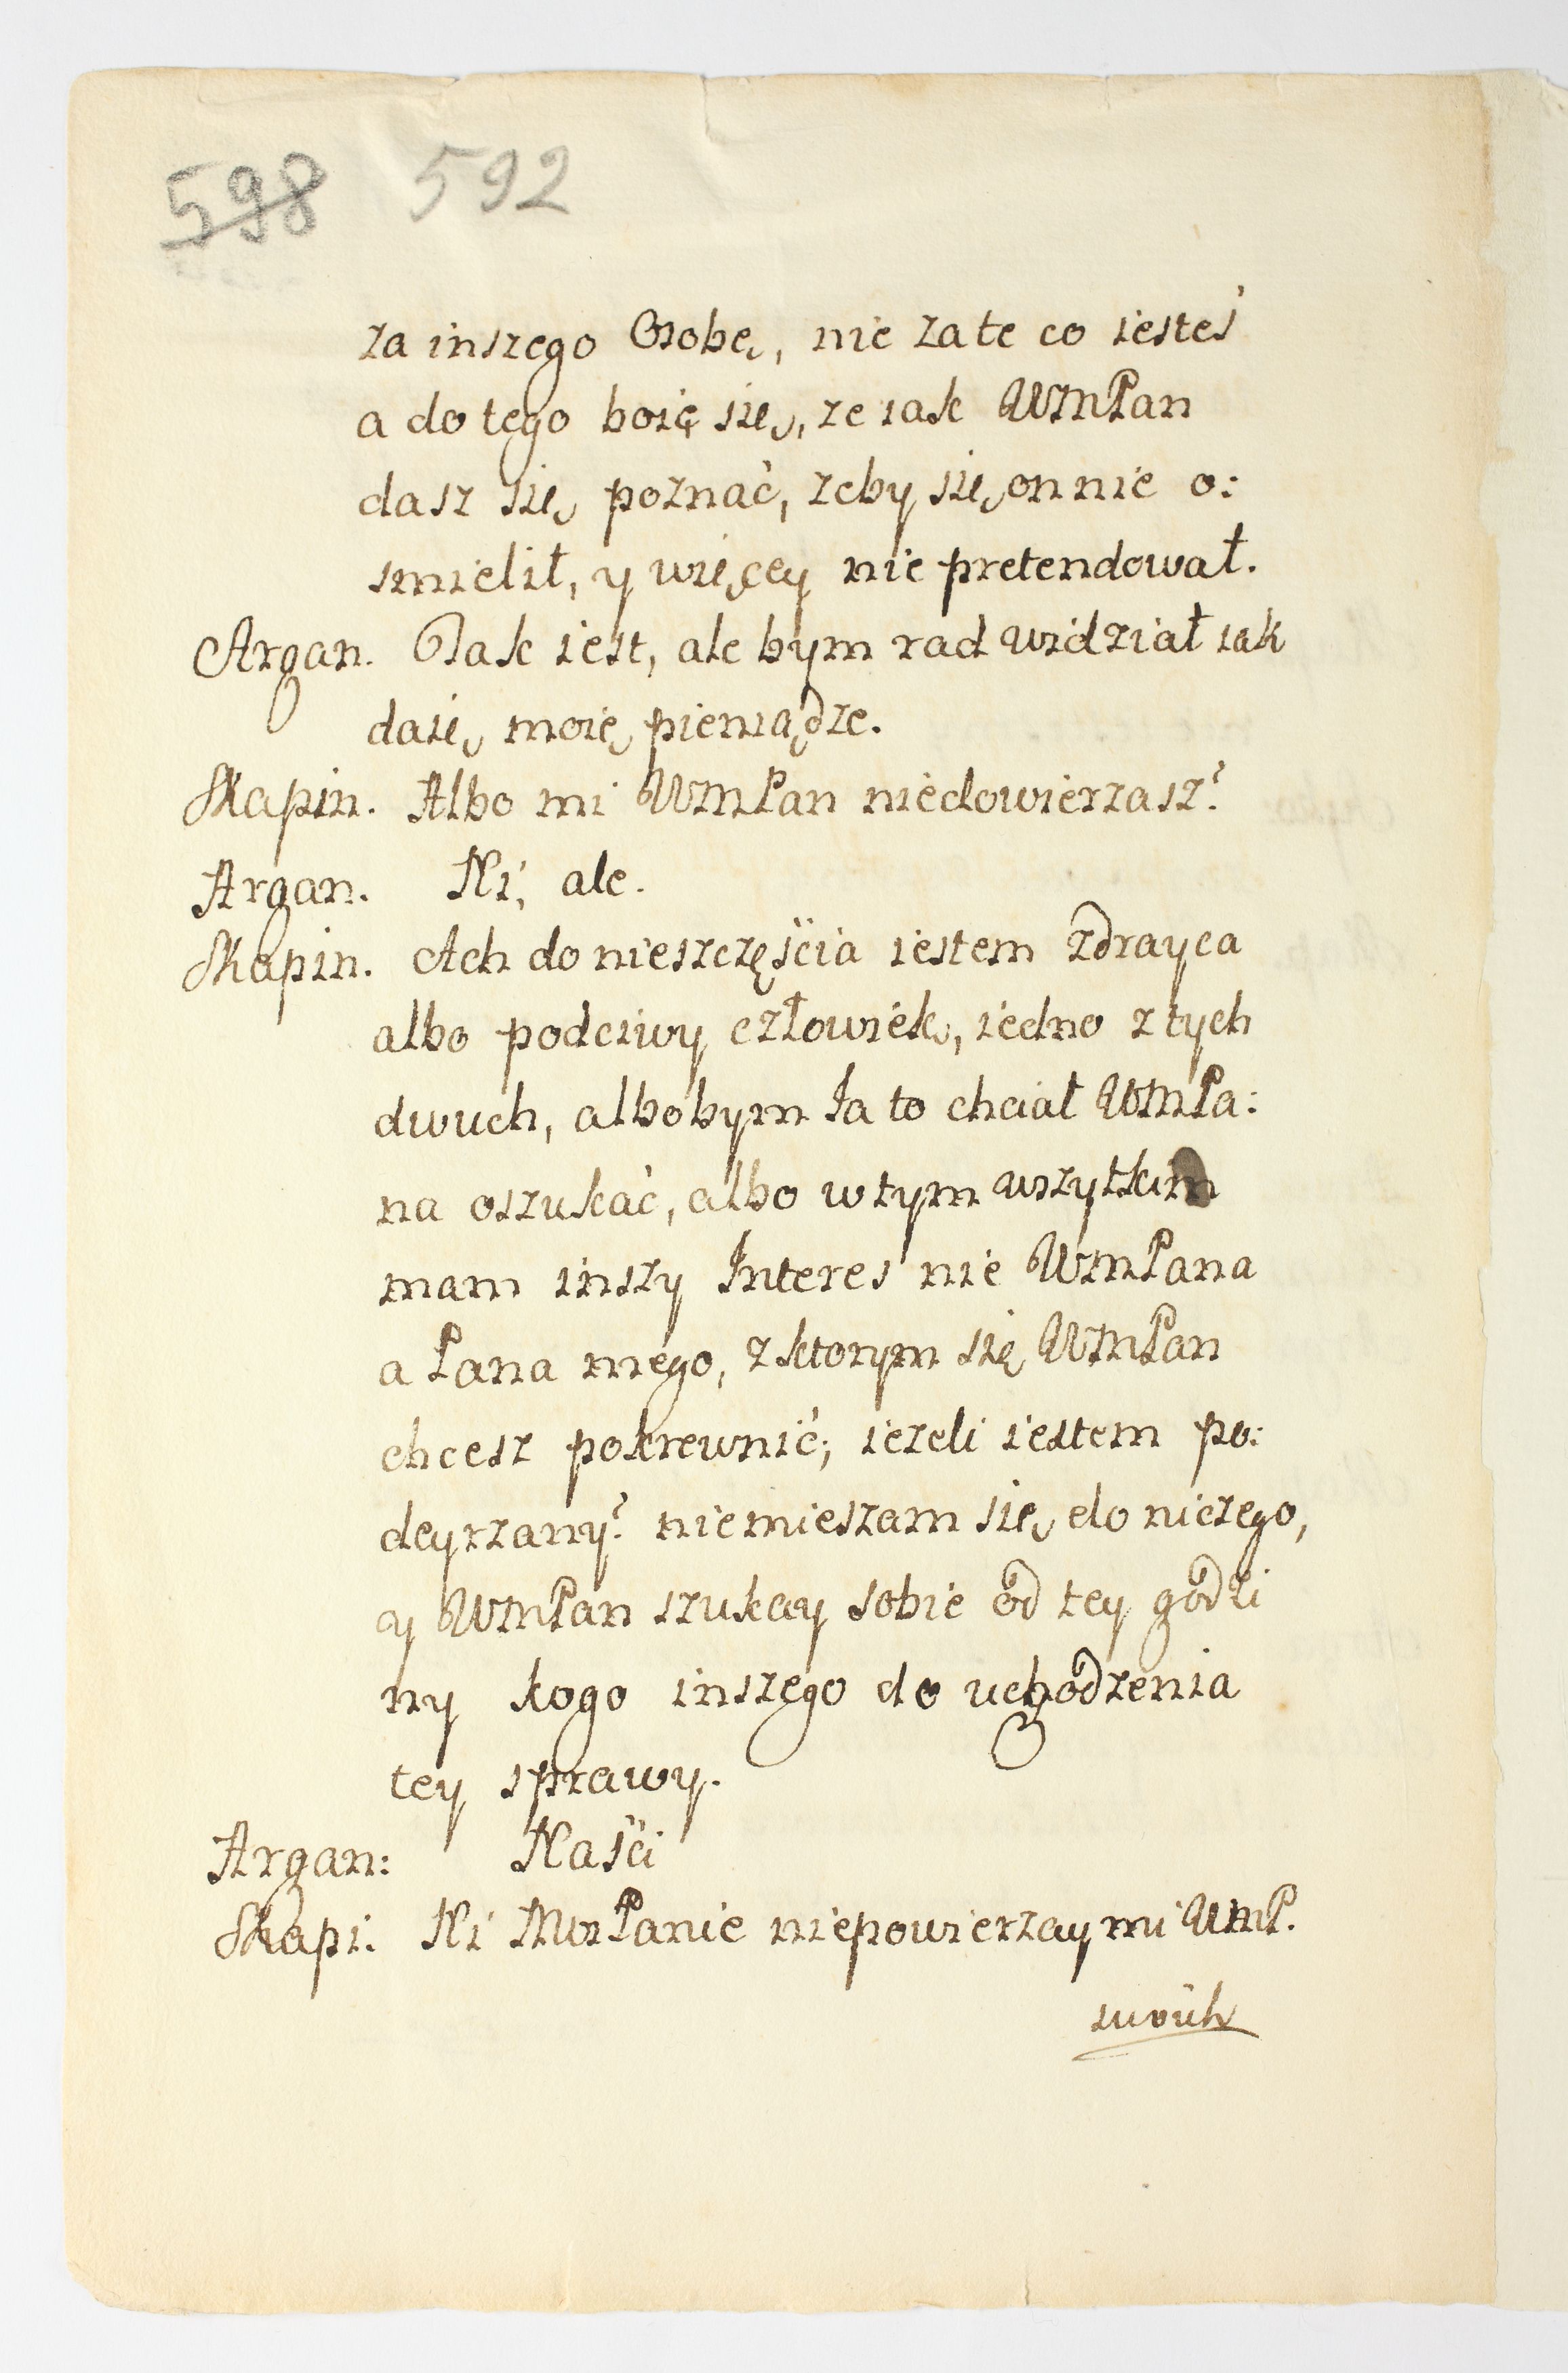 598 592
za inszego Osobę, nie za te co iesteś
a do tego boię się, ze iak WMPan
dasz się poznać, zeby się on nie o:
smielił, y więcey nie pretendował.
Argan. Tak iest, ale bym rad widział iak
daię moię pieniądze.
Skapin. Albo mi WMPan niedowierzasz?
Argan. Ni, ale.
Skapin. Ach do nieszczęścia iestem zdrayca
albo podciwy człowiek, iedno z tych
dwuch, albobym Ia to chciał WMPa:
na oszukać, albo w tym wszytkim
mam inszy Interes nie WMPana
a Pana mego, z ktorym się WMPan
chcesz pokrewnić; iezeli iestem po:
deyrzany? niemieszam się do niczego,
y WMPan szukay sobie od tey godzi
ny kogo inszego do uchodzenia
tey sprawy.
Argan: Naści
Skapi. Ni MWPanie niepowierzay mi WMP.
swoich